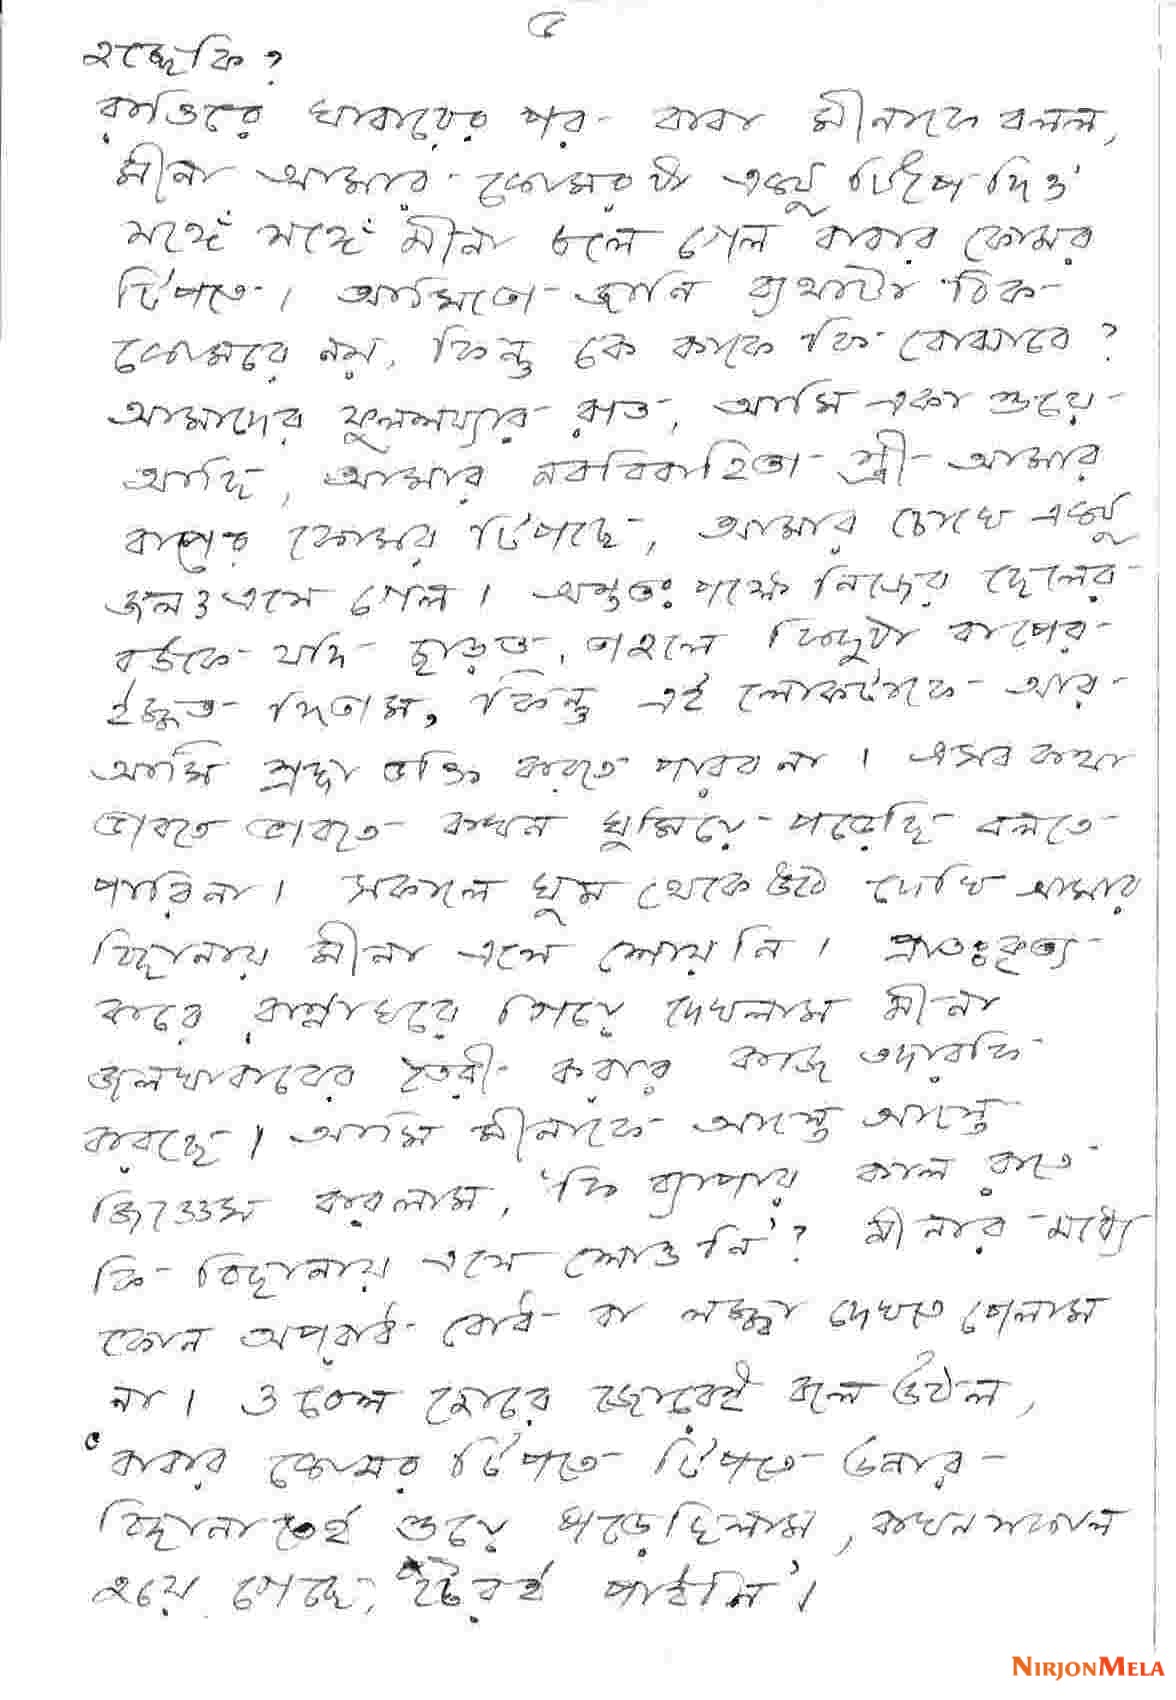 ৫
হচ্ছে কি?
রাত্তিরে খাবারের পর বাবা মীনাকে বলল,
মীনা আমার কোমরটা একটু টিপে দিও'
সঙ্গে সঙ্গে মীনা চলে গেল বাবার কোমর
টিপতে। আমিতো জানি ব্যথাটা ঠিক
কোমরে নয়, কিন্তু কে কাকে কি বোঝাবে?
আমাদের ফুলশয্যার রাত, আমি একা শুয়ে
আছি, আমার নববিবাহিতা স্ত্রী আমার
বাপের কোমর টিপছে, আমার চোখে একটু
জলও এসে গেল। অন্ততঃ পক্ষে নিজের ছেলের
বউকে যদি ছাড়ত, তাহলে কিছুটা বাপের
ইজ্জত দিতাম, কিন্তু এই লোকটাকে আর
আমি শ্রদ্ধা ভক্তি করতে পারব না। এসব কথা
ভাবতে ভাবতে কখন ঘুমিয়ে পড়েছি বলতে
পারিনা। সকালে ঘুম থেকে উঠে দেখি আমার
বিছানায় মীনা এসে শোয়নি। প্রাতঃকৃত্য
করে রান্নাঘরে গিয়ে দেখলাম মীনা
জলখাবারের তৈরী করার কাজ তদারকি
করছে। আমি মীনাকে আস্তে আস্তে
জিজ্ঞেস করলাম, 'কি ব্যাপার কাল রাতে
কি বিছানায় এসে শোওনি'? মীনার মধ্যে
কোন অপরাধ বোধ বা লজ্জা দেখতে পেলাম
না। ও বেশ জোরে জোরেই বলে উঠল,
'বাবার কোমর টিপতে টিপতে উনার
বিছানাতেই শুয়ে পড়েছিলাম, কখন সকাল
হয়ে গেছে, টেরই পাইনি'।
NIRJONMELA